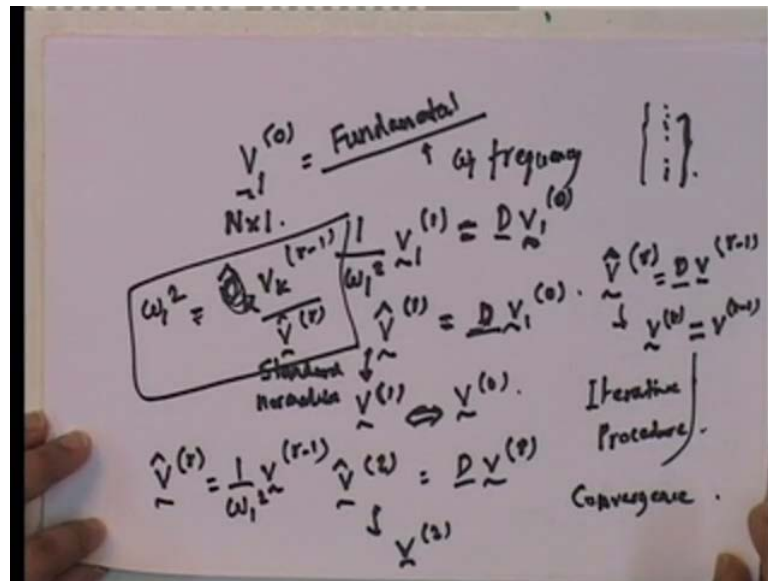 V₁^(0) = Fundamental
↑ ω₁ frequency
N×1.
{ 1 : : 1 }.
1/ω₁² V₁^(1) = D V₁^(0)
ω₁² = V_k^(r-1) / V̂^(r)
V̂^(1) = D V₁^(0).
V̂^(r) = D V^(r-1)
↓ V^(r) = V^(r-1)
Standard
normalise V^(1) ⇔ V^(0).
Iterative
Procedure.
V̂^(r) = 1/ω₁² V^(r-1)
V̂^(2) = D V^(1)
↓
V^(2)
Convergence.